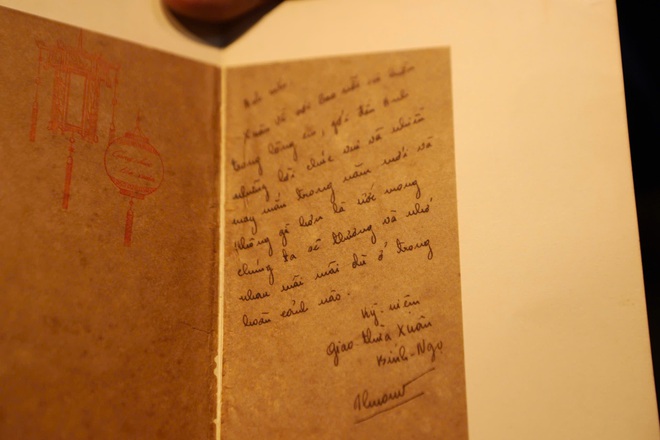 Xuân về với bao nỗi
trong lòng em, gởi đến Anh
những lời chúc vui và nhiều
may mắn trong năm mới và
không gì hơn là ước mong
chúng ta sẽ thương và nhớ
nhau mãi mãi dù ở trong
hoàn cảnh nào.
Kỷ-niệm
giao thừa Xuân
Bính-Ngọ